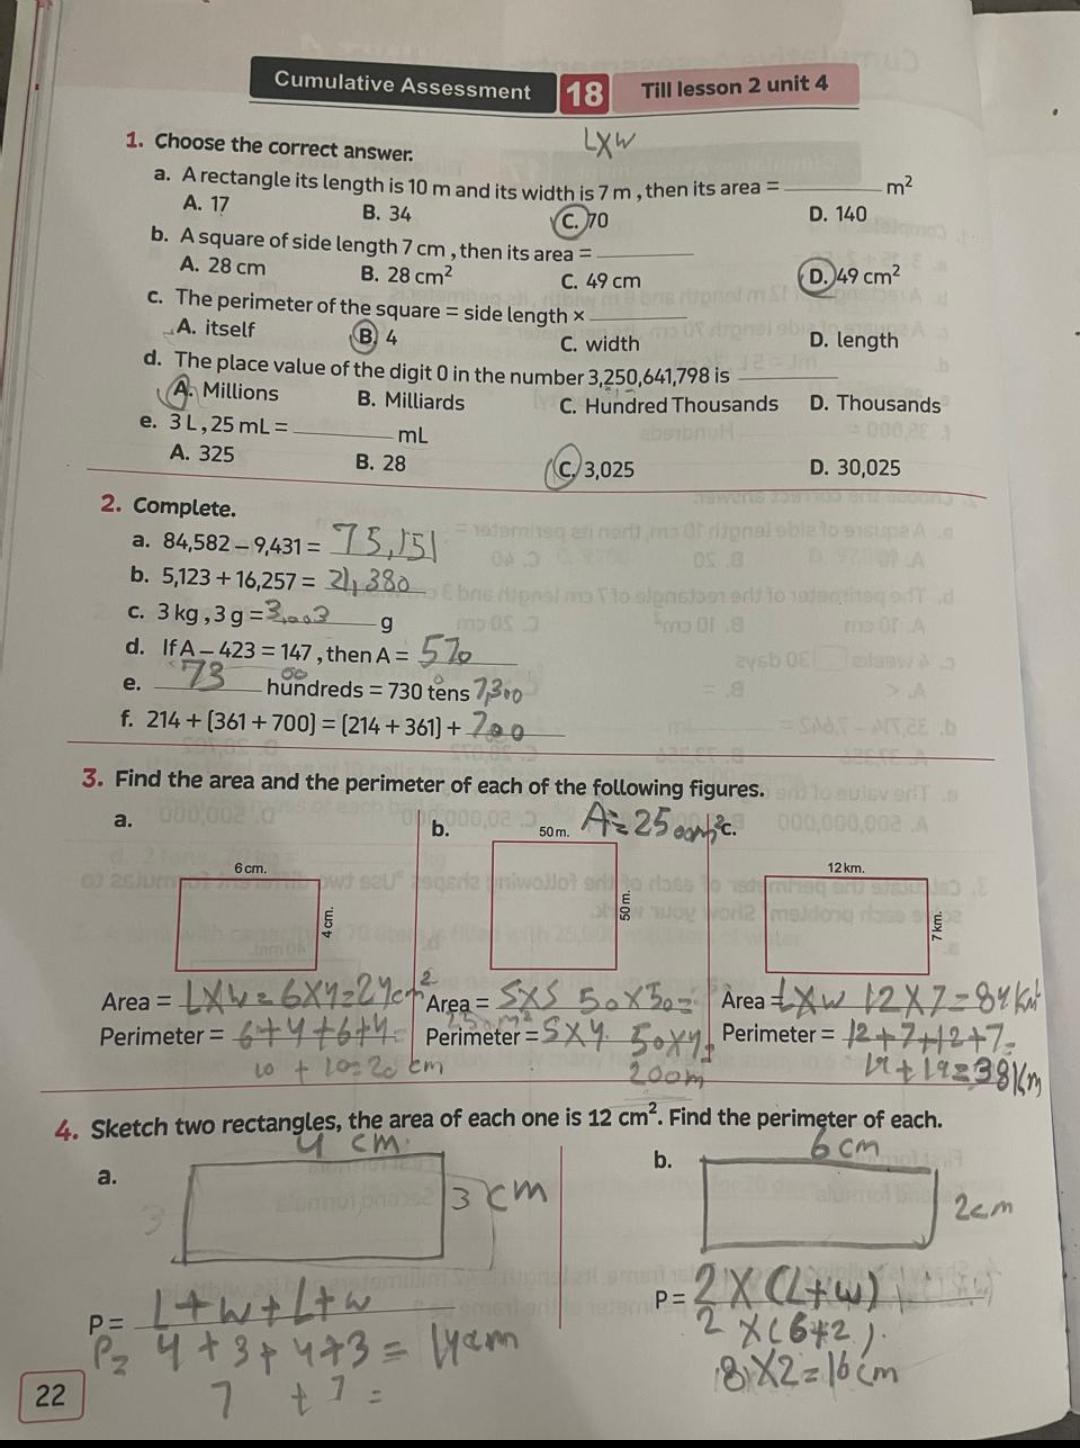 Cumulative Assessment 18 Till lesson 2 unit 4
LXW
1. Choose the correct answer.
a. A rectangle its length is 10 m and its width is 7 m , then its area = ______ m²
A. 17 B. 34 C. 70 D. 140
b. A square of side length 7 cm , then its area = ______
A. 28 cm B. 28 cm² C. 49 cm D. 49 cm²
c. The perimeter of the square = side length × ______
A. itself B. 4 C. width D. length
d. The place value of the digit 0 in the number 3,250,641,798 is ______
A. Millions B. Milliards C. Hundred Thousands D. Thousands
e. 3 L , 25 mL = ______ mL
A. 325 B. 28 C. 3,025 D. 30,025
2. Complete.
a. 84,582 – 9,431 = 75,151
b. 5,123 + 16,257 = 21,380
c. 3 kg , 3 g = 3,003 g
d. If A – 423 = 147 , then A = 570
e. 73 hundreds = 730 tens 7,300
f. 214 + (361 + 700) = (214 + 361) + 700
3. Find the area and the perimeter of each of the following figures.
a. b. c.
A = 2500m²
6 cm.
4 cm.
50 m.
50 m.
12 km.
7 km.
Area = LXW = 6X4=24cm²
Perimeter = 6+4+6+4=
10 + 10=20 cm
Area = SXS 50X50=
Perimeter = SX4 50X4=
200m
Area = LXW 12X7=84km²
Perimeter = 12+7+12+7=
19+19=38Km
4. Sketch two rectangles, the area of each one is 12 cm². Find the perimeter of each.
a. 4 cm
3 cm
P = L+W+L+W
P= 4+3+4+3 = 14cm
7 + 7 =
b. 6cm
2cm
P = 2X(L+W)
2 X(6+2).
8X2=16cm
22